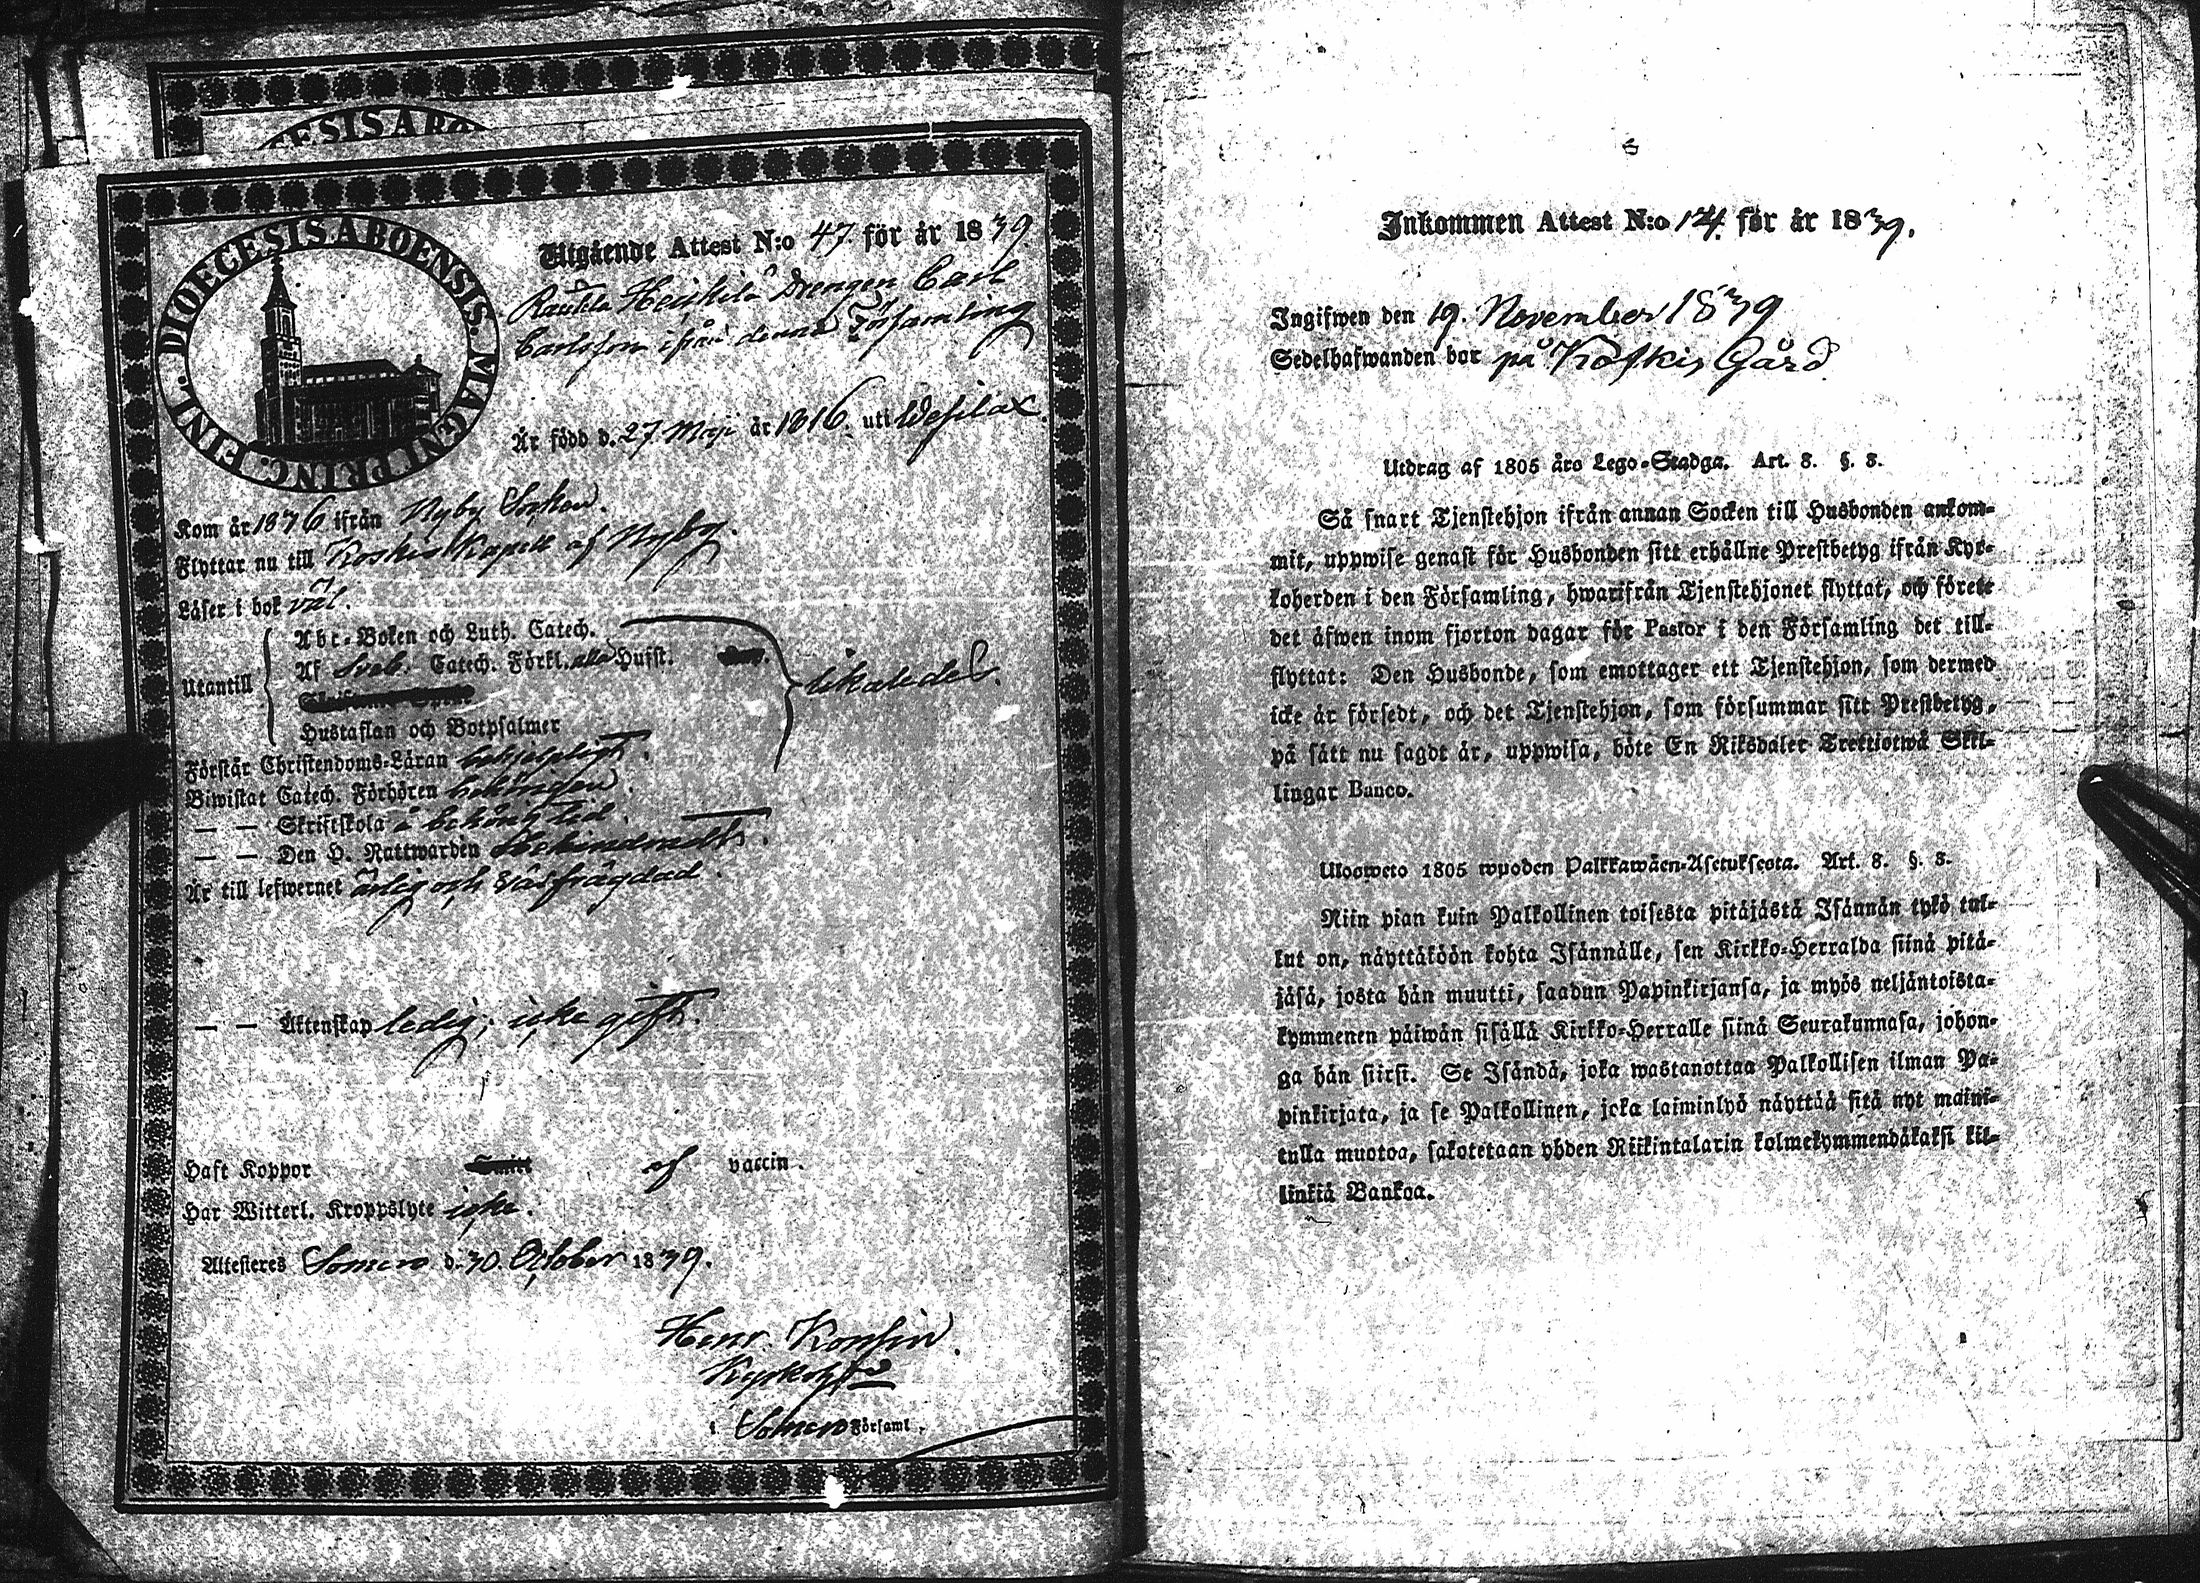 GESIS ABO
FINL. DIOECESIS ABOENSIS. MAGNI PRINC.
Utgående Attest N:o 47. för år 1839
Heikkilä Drengen Carl
Carlsson ifrån denna Församling
Är född d. 27 Maji år 1816. uti Wesilax.
Kom år 1836 ifrån Nyby Socken.
Flyttar nu till Koskis Kapell af Nyby.
Läser i bok väl.
Utantill
Abc-Boken och Luth. Catech.
Af Sveb. Catech. Förkl. alla Hufst.
Hustaflan och Botpsalmer
likaledes.
Förstår Christendoms-Läran hehjelpligt.
Biwistat Catech. Förhören behörigen.
— — Skriftskola å behörig tid.
— — Den H. Nattwarden
Är till lefwernet ärlig och välfrägdad.
— — Äktenskap ledig; icke gift.
Haft Koppor af vaccin.
Har Witterl. Kroppslyte icke.
Attesteres Somero d. 30 October 1839.
Henr. Konsin.
Kyrkoh
i Somero Församl.
Inkommen Attest N:o 14. för år 1839.
Ingifwen den 19. November 1839
Sedelhafwanden bor på Koskis Gård
Utdrag af 1805 års Lego-Stadga. Art. 8. §. 3.
Så snart Tjenstehjon ifrån annan Socken till Husbonden ankom-
mit, uppwise genast för Husbonden sitt erhållne Prestbetyg ifrån Kyr-
koherden i den Församling, hwarifrån Tjenstehjonet flyttat, och förete
det äfwen inom fjorton dagar för Pastor i den Församling det till-
flyttat: Den Husbonde, som emottager ett Tjenstehjon, som dermed
icke är försedt, och det Tjenstehjon, som försummar sitt Prestbetyg,
på sätt nu sagdt är, uppwisa, böte En Riksdaler Trettiotwå Skil-
lingar Banco.
Ulosweto 1805 wuoden Palkkawäen-Asetuksesta. Art. 8. §. 3.
Niin pian kuin Palkollinen toisesta pitäjästä Isännän tykö tul-
lut on, näyttäköön kohta Isännälle, sen Kirkko-Herralda siinä pitä-
jäsä, josta hän muutti, saadun Papinkirjansa, ja myös neljäntoista-
kymmenen päiwän sisällä Kirkko-Herralle siinä Seurakunnasa, johon-
ga hän siirsi. Se Isändä, joka wastanottaa Palkollisen ilman Pa-
pinkirjata, ja se Palkollinen, joka laiminlyö näyttää sitä nyt maini-
tulla muotoa, sakotetaan yhden Riikintalarin kolmekymmendäkaksi kil-
linkiä Bankoa.